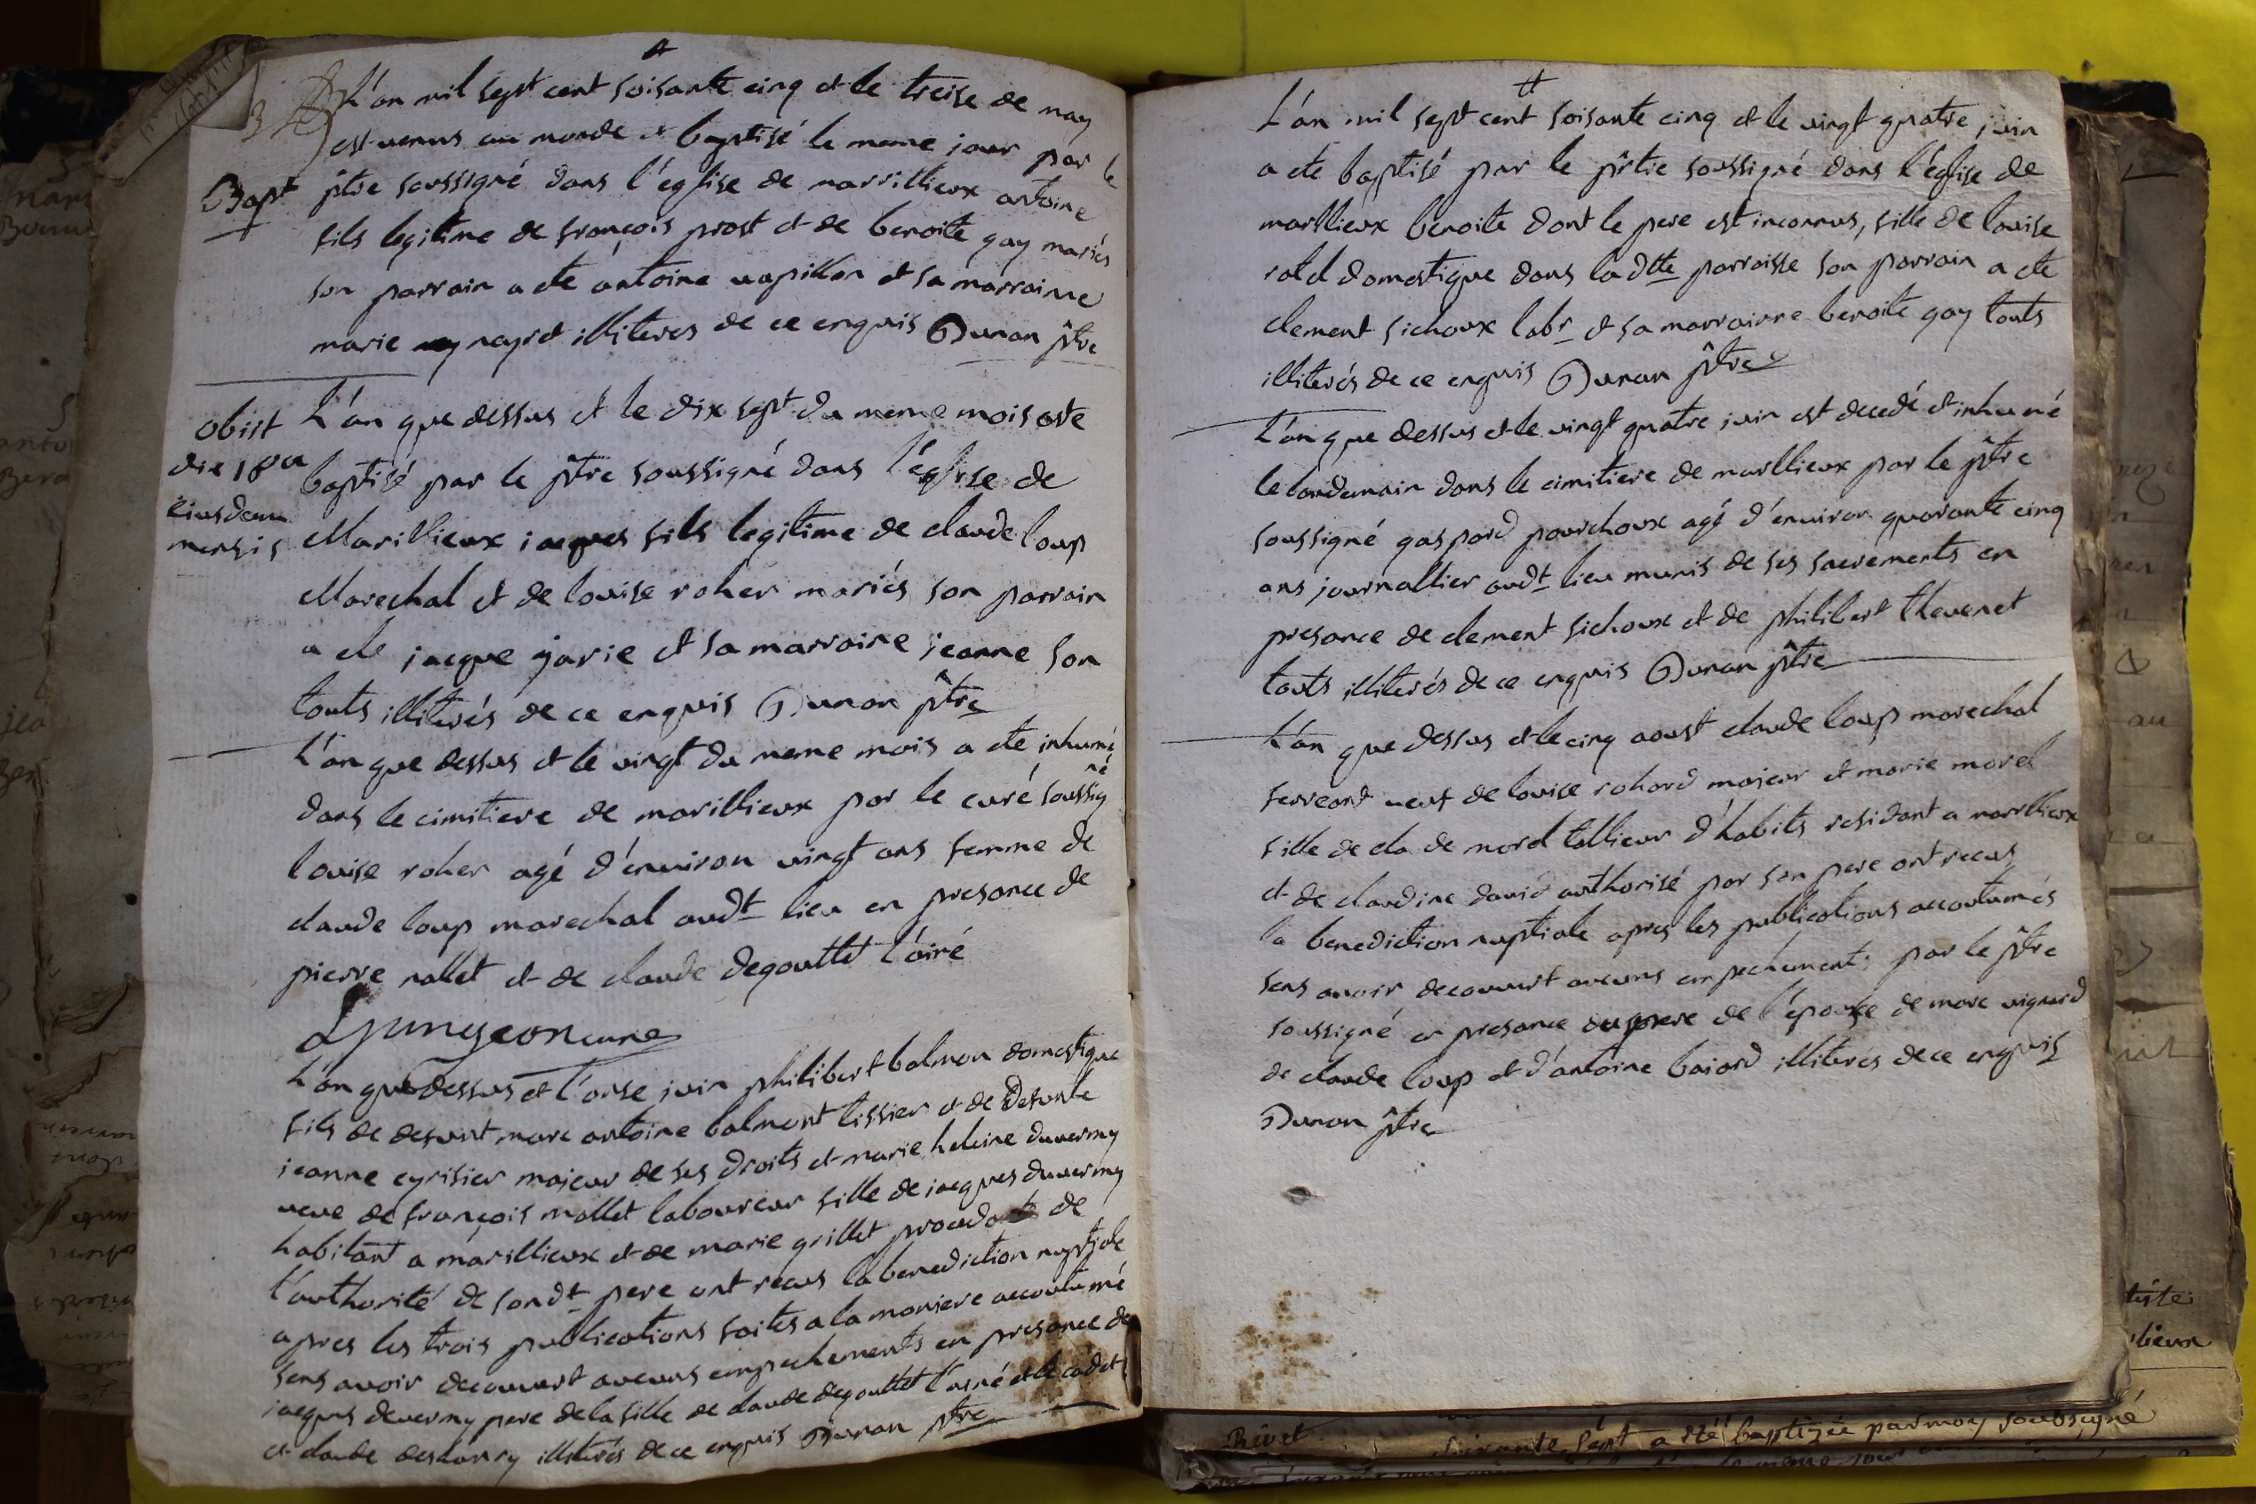 L'an mil sept cent soisante cinq et le treise de may
est venus au monde et baptisé le meme jour par le
Bapt
ptre soussigné dans l'église de marillieux antoine
fils legitime de françois prost et de benoite gay mariés
son parrain a ete antoine vapillon et sa marraine
marie neyret illiteres de ce enquis Dunan ptre
obiit
die 18va
eiusdem
mensis
L'an que dessus et le dix sept du meme mois a ete
baptisé par le ptre soussigné dans l'église de
Marillieux jacques fils legitime de claude loup
Marechal et de louise roher mariés son parrain
a ete jacque jarie et sa marraine jeanne son
touts illiterés de ce enquis Dunan ptre
L'an que dessus et le vingt du meme mois a ete inhumé
dans le cimitiere de marillieux par le curé soussigné
louise roher agé d'environ vingt ans femme de
claude loup marechal audt lieu en presance de
pierre nallet et de claude degouttet l'ainé
curé
L'an que dessus et l'onse juin philibert balmon domestique
fils de defunt marc antoine balmont tissier et de defunte
jeanne cyrisier majeur de ses droits et marie heleine duvermy
veuve de françois mallet laboureur fille de jacques duvermy
habitant a marillieux et de marie grillet procedante de
l'authorité de sondt pere ont recus la benediction nuptiale
apres les trois publications faites a la maniere accoutumé
sens avoir decouvert aucuns empechements en presance de
jacques duvermy pere de la fille de claude degouttet l'ainé et le cadet
et claude illiterés de ce enquis Dunan ptre
L'an mil sept cent soisante cinq et le vingt quatre juin
a ete baptisé par le prtre soussigné dans l'église de
marllieux benoite dont le pere est inconnus, fille de louise
rolet domestique dans la dtte parroisse son parrain a ete
clement sichoux labr et sa marrainne benoite gay touts
illiterés de ce enquis Dunan ptre
L'an que dessus et le vingt quatre juin est decedé et inhumé
le landemain dans le cimitiere de marllieux par le ptre
soussigné gaspard pourchoux agé d'environ quarante cinq
ans journallier audt lieu munis de ses sacrements en
presance de clement sichoux et de philibert thevenet
touts illiterés de ce enquis Dunan ptre
L'an que dessus et le cinq aoust claude loup marechal
ferreant veuf de louise rohard majeur et marie morel
fille de claude morel tallieur d'habits residant a marllieux
et de claudine david authorisé par son pere ont recus
la benediction nuptiale apres les publications accoutumés
sens avoir decouvert aucuns empechements par le ptre
soussigné en presance du pere de l'épouse de marc vignard
de claude loup et d'antoine baiard illiterés de ce enquis
Dunan ptre
Rivet
soixante sept a été baptizée par moy soubsigné